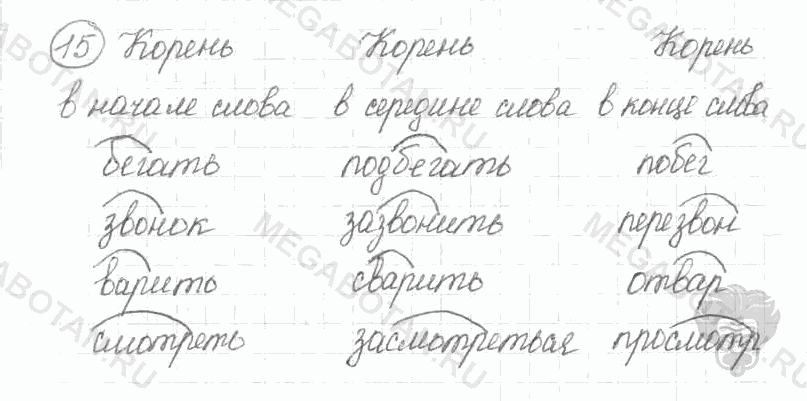 15 Корень Корень Корень
в начале слова в середине слова в конце слова
бегать подбегать побег
звонок зазвонить перезвон
варить сварить отвар
смотреть засмотреться просмотр
MEGABOTAN.RU